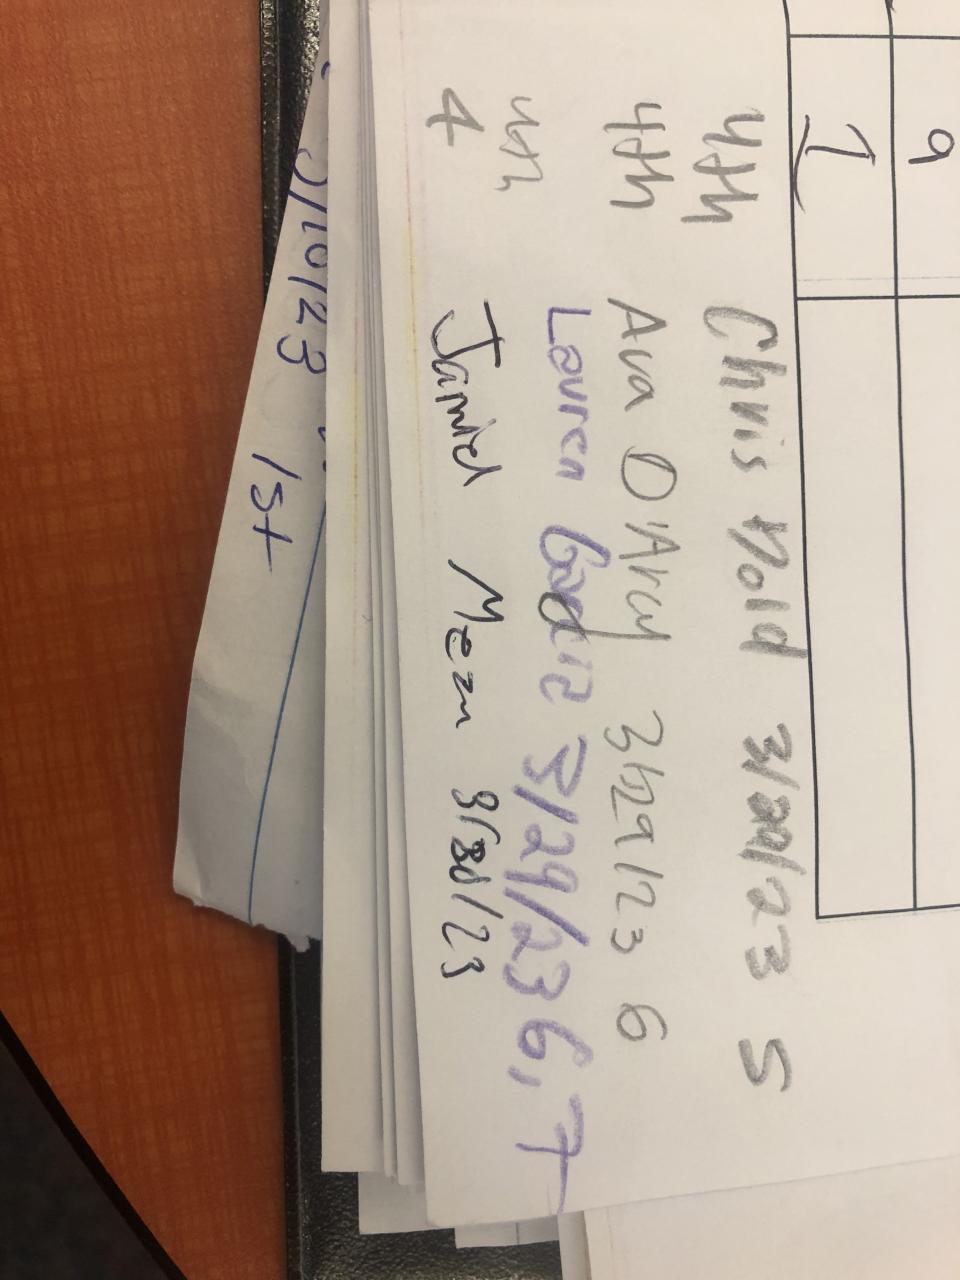 9
1
4th Chris Nold 3/29/23 5
4th Ava D'Arcy 3/29/23 6
4th Lauren 3/29/23 6,7
4 Jamie 3/30/23
3/10/23
1st